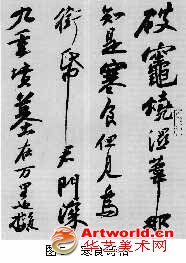 破竈燒濕葦那
知是寒食但見烏
銜帋君門深
九重墳墓在万里也擬
Artworld.cn
华艺美术网
图
寒食诗帖